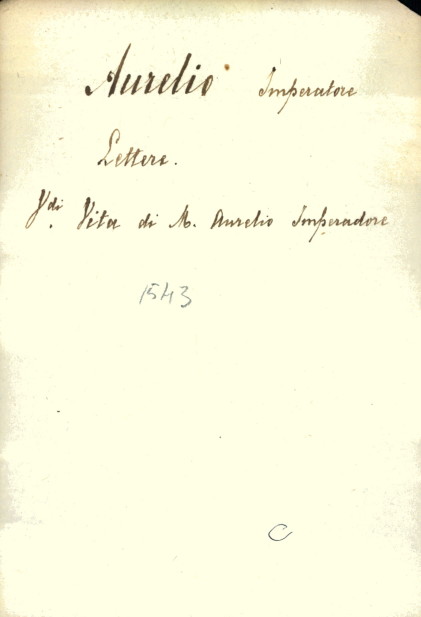 Aurelio Imperatore
Lettere.
Vdi. Vita di M. Aurelio Imperadore
1543
C